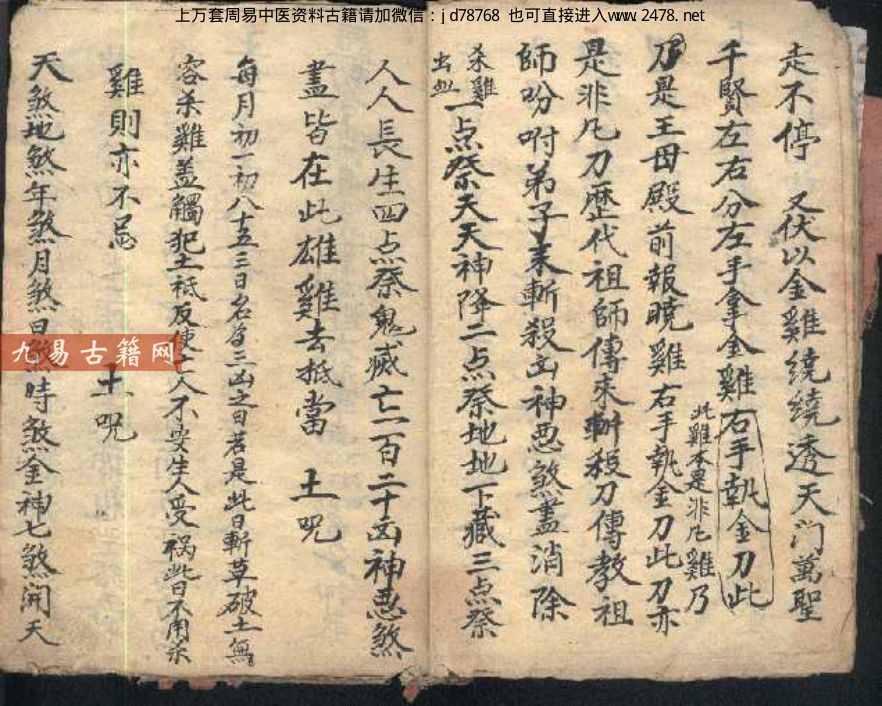 上万套周易中医资料古籍请加微信：jd78768 也可直接进入www.2478.net
走不停 又伏以金雞繞繞透天门萬聖
千賢左右分左手拿金雞右手執金刀此
此雞本是非凡雞乃
乃是王母殿前報曉雞右手執金刀此刀亦
是非凡刀歷代祖師傳來斬殺刀傳教祖
師吩咐弟子来斬殺凶神惡煞盡消除
杀雞
出血
一点祭天天神降二点祭地地下藏三点祭
人人長生四点祭鬼滅亡一百二十凶神惡煞
盡皆在此雄雞去抵當 土呪
每月初一初八十五三日名為三凶之日若是此日斬草破土無
容杀雞盖觸犯土祗反使亡人不安生人受祸此日不用杀
雞則亦不忌 土呪
天煞地煞年煞月煞日煞時煞金神七煞開天
九易古籍网